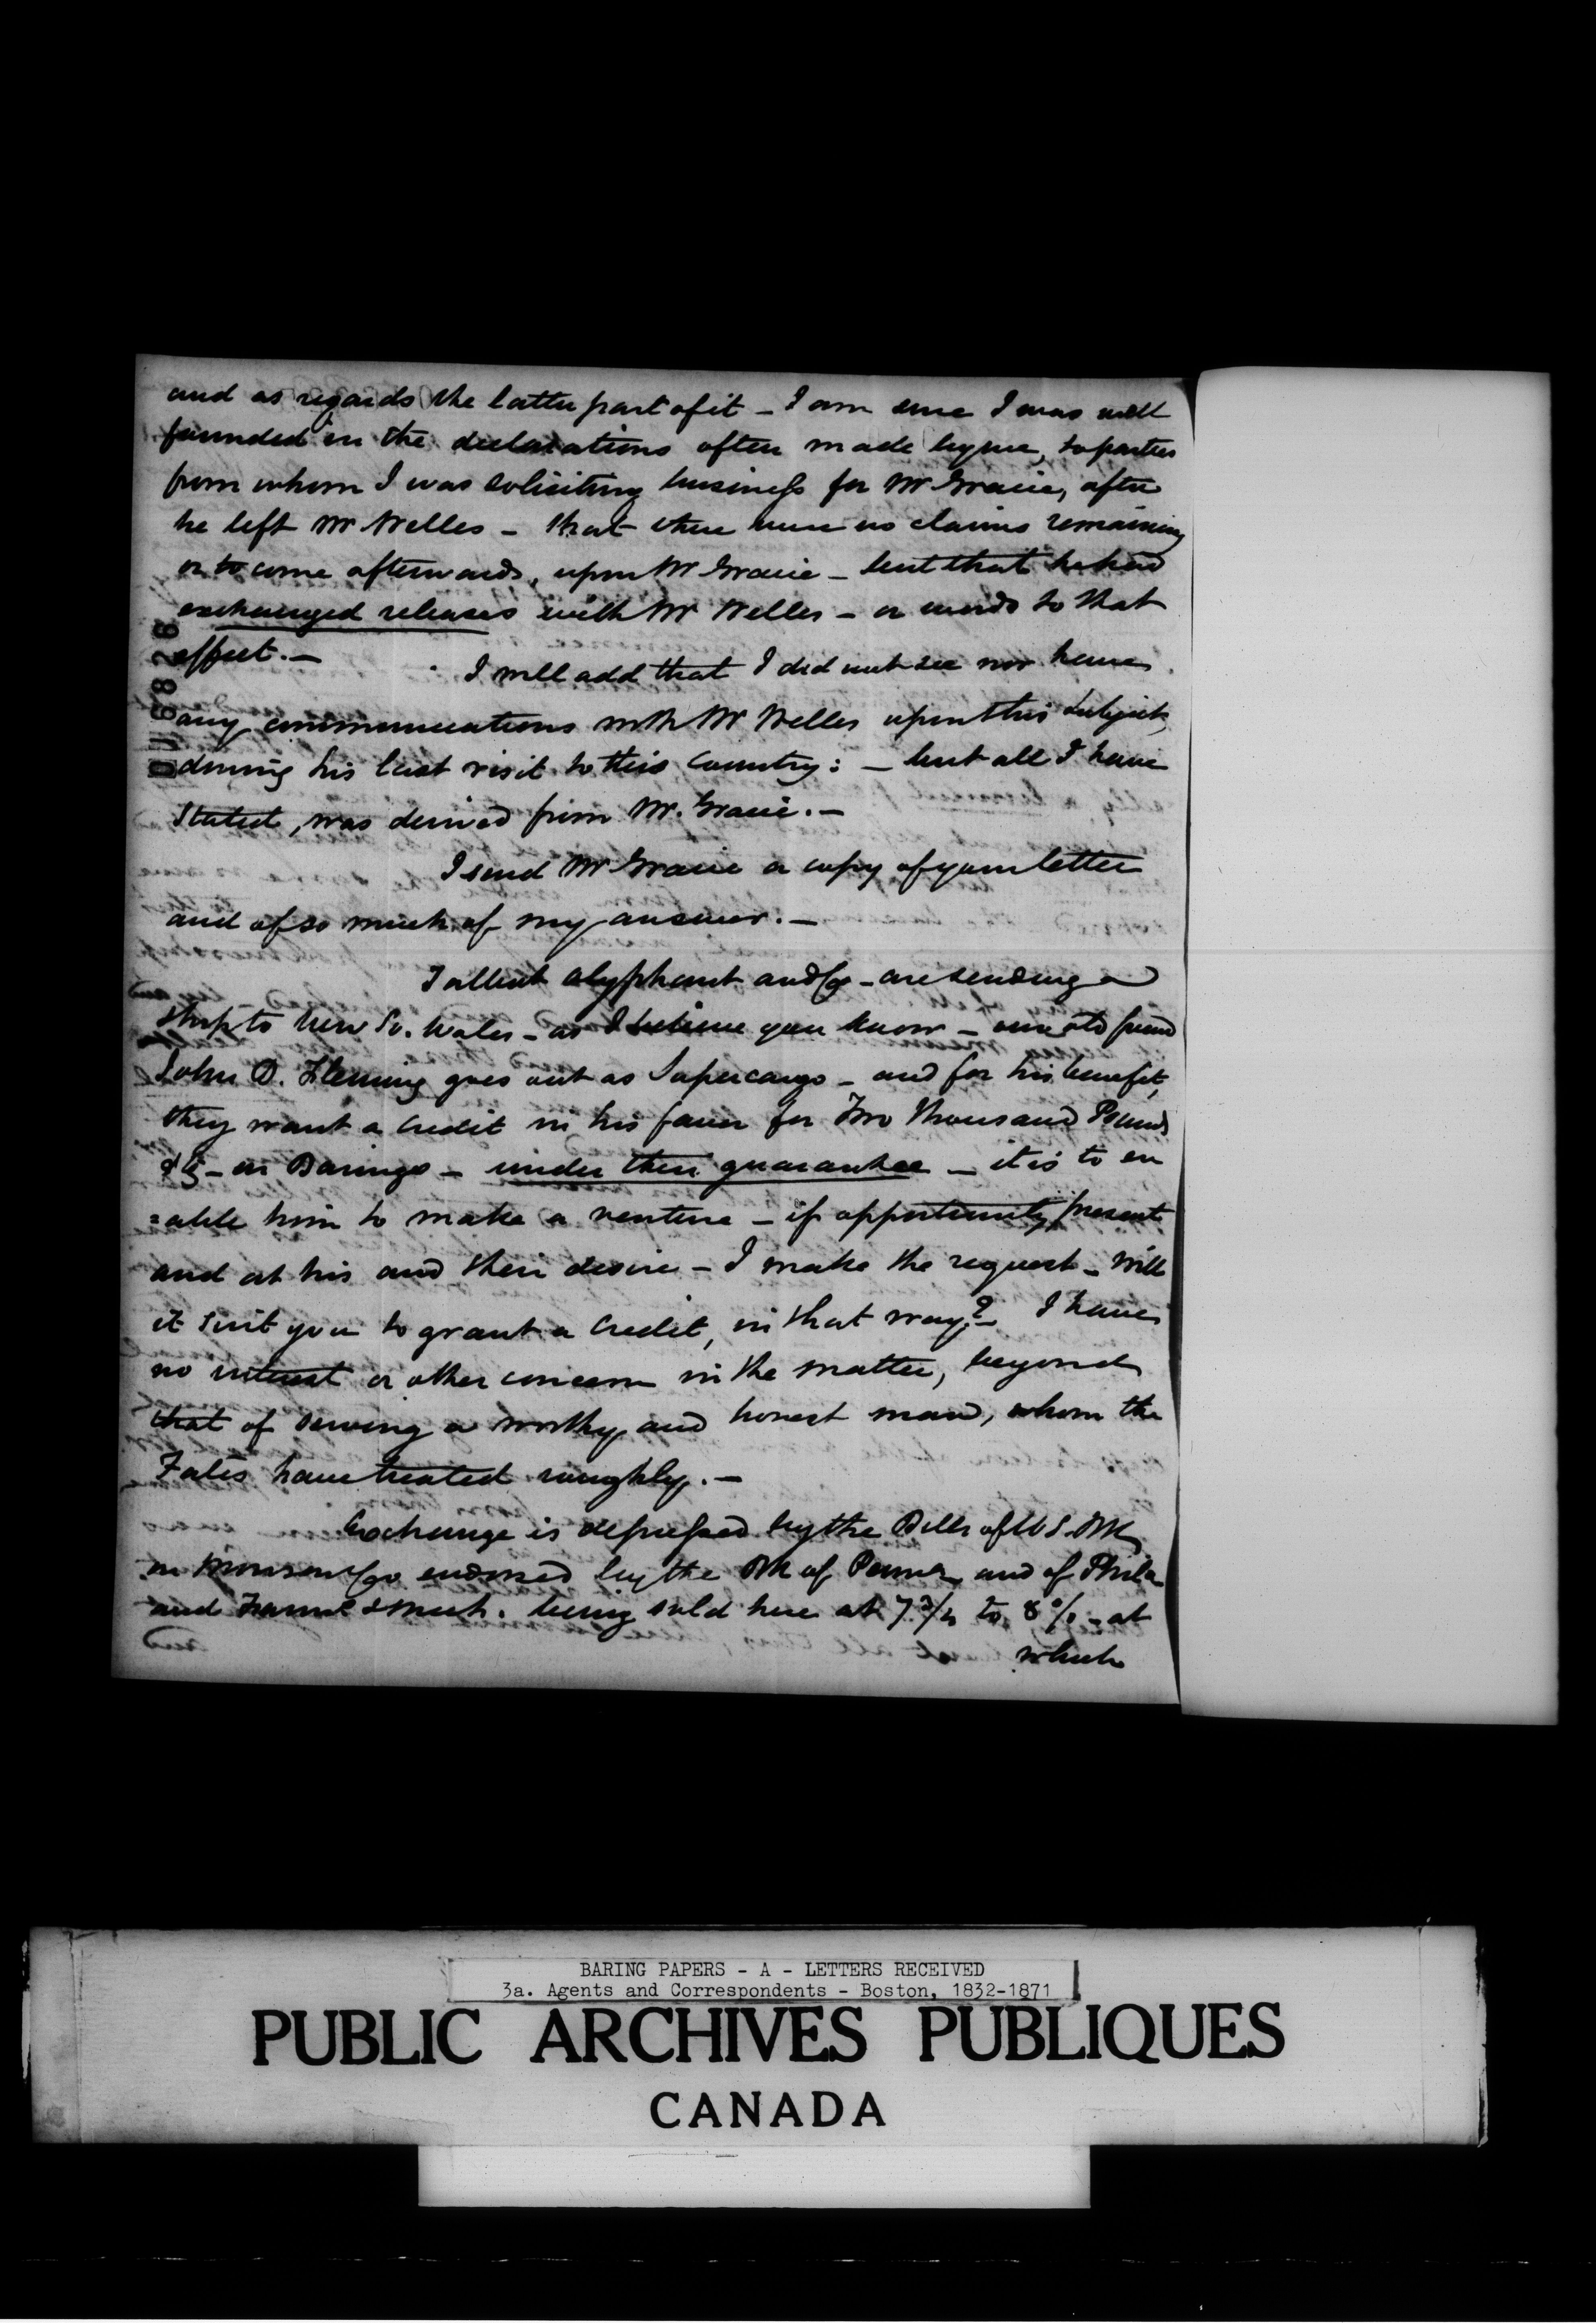 and as regards the latter part of it - I am sure I was well
founded in the declarations often made by me, to parties
from whom I was soliciting business for Mr Gracie, after
he left Mr Welles - that there were no claims remaining
or to come afterwards, upon Mr Gracie - but that he had
exchanged releases with Mr Welles - or words to that
effect. -
I will add that I did not see nor have
any communications with Mr Welles upon this subject,
during his last visit to this Country: - but all I have
stated, was derived from Mr. Gracie. -
I send Mr Gracie a copy of your letter
and of so much of my answer. -
Talbot Olyphant and Co - are sending a
ship to New So. Wales - as I believe you know - our old friend
John D. Fleming goes out as Supercargo - and for his benefit,
they want a credit in his favor for Two Thousand Pounds
Stg - on Barings - under their guarantee - it is to en
=able him to make a venture - if opportunity present
and at his and their desire - I make the request - Will
it suit you to grant a credit, in that way? - I have
no interest or other concern in the matter, beyond
that of serving a worthy and honest man, whom the
Fates have treated roughly. -
Exchange is depressed by the Bills of U S. Bk
on Morrison & Co endorsed by the Bk of Penna and of Phila
and Farmrs & Mech. being sold here at 7 3/4 to 8 % - at
which
016826
BARING PAPERS - A - LETTERS RECEIVED
3a. Agents and Correspondents - Boston, 1832-1871
PUBLIC ARCHIVES PUBLIQUES
CANADA